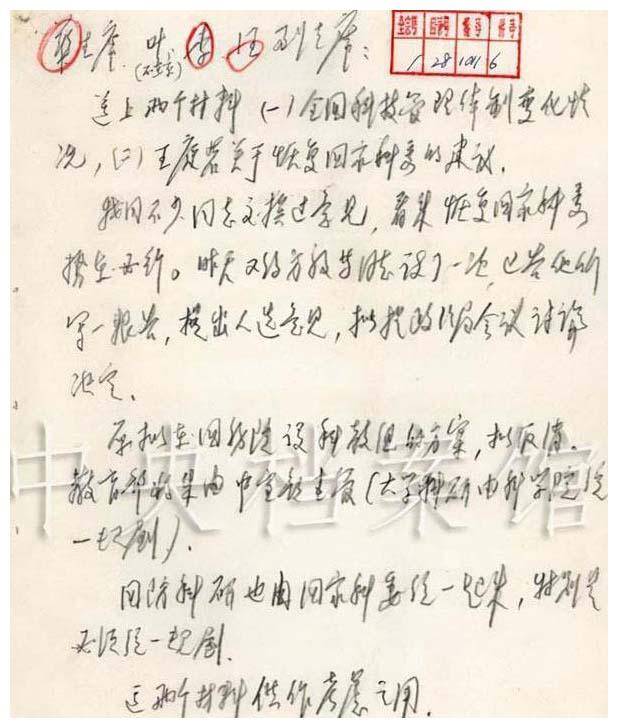 华主席、叶、李、汪副主席：
(不在京)
全宗号 目录号 卷号 件号
1 28 101 6
送上两个材料(一)全国科技管理体制变化情
况，(二)王庭若关于恢复国家科委的建议。
我同不少同志交换过意见，看来恢复国家科委
势在必行。昨天又约方毅等同志谈了一次，已告他们
写一报告，提出人选意见，拟提政治局会议讨论
决定。
原拟在国务院设科教组的方案，拟
教育部 (大学科研由科学院统
一规划)。
国防科研也由国家科委统一起来，特别是
必须统一规划。
这两个材料供作考虑之用。
中央档案馆